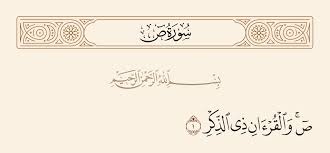 سُورَةُ صٓ
بِسْمِ ٱللَّهِ ٱلرَّحْمَٰنِ ٱلرَّحِيمِ
صٓۚ وَٱلْقُرْءَانِ ذِى ٱلذِّكْرِ ١